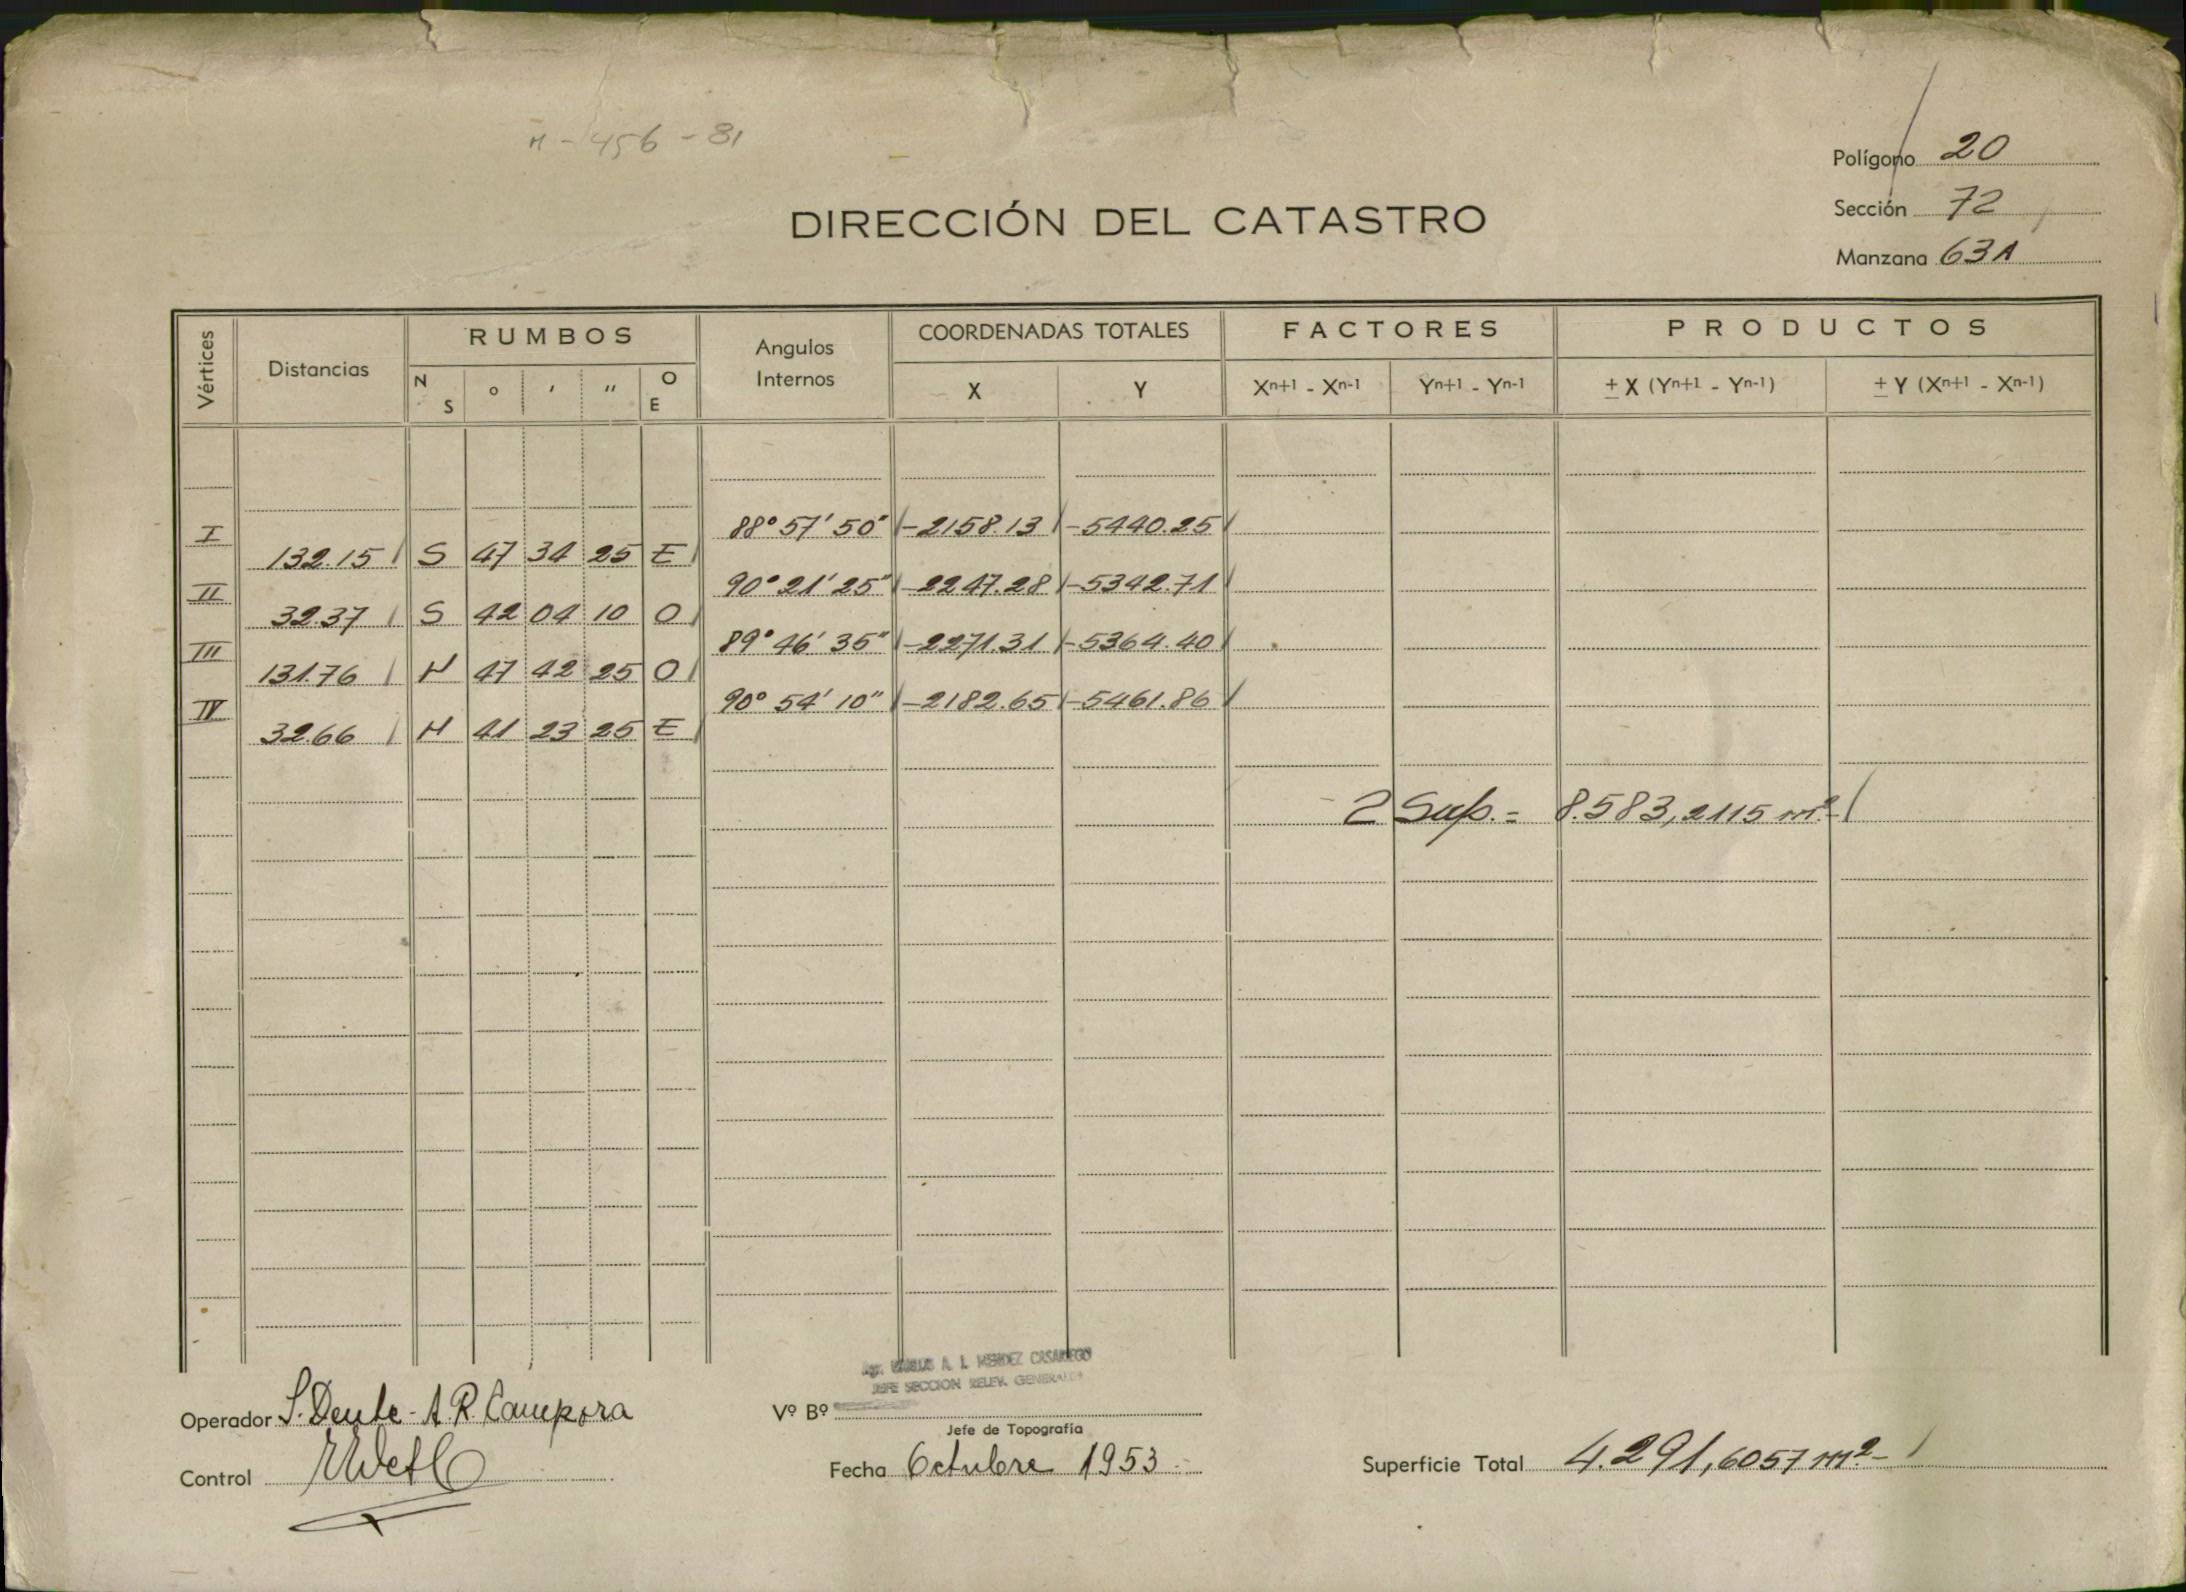 M - 456 - 81
Polígono 20
Sección 72
Manzana 63A
DIRECCIÓN DEL CATASTRO
Vértices Distancias RUMBOS Angulos Internos COORDENADAS TOTALES FACTORES PRODUCTOS
N S ° ′ ″ O E X Y Xn+1 - Xn-1 Yn+1 - Yn-1 ± X (Yn+1 - Yn-1) ± Y (Xn+1 - Xn-1)
I 88° 57′ 50″ -2158.13 -5440.25
132.15 S 47 34 25 E
II 90° 21′ 25″ -2247.28 -5342.71
32.37 S 42 04 10 O
III 89° 46′ 35″ -2271.31 -5364.40
131.76 N 47 42 25 O
IV 90° 54′ 10″ -2182.65 -5461.86
32.66 N 41 23 25 E
2 Sup. = 8.583,2115 m²
A. I. MENDEZ CASARIEGO
JEFE SECCION RELEV. GENERALES
Operador S. Dente - A. R. Campora
Vº Bº
Jefe de Topografía
Control
Fecha Octubre 1953
Superficie Total 4.291,6057 m²